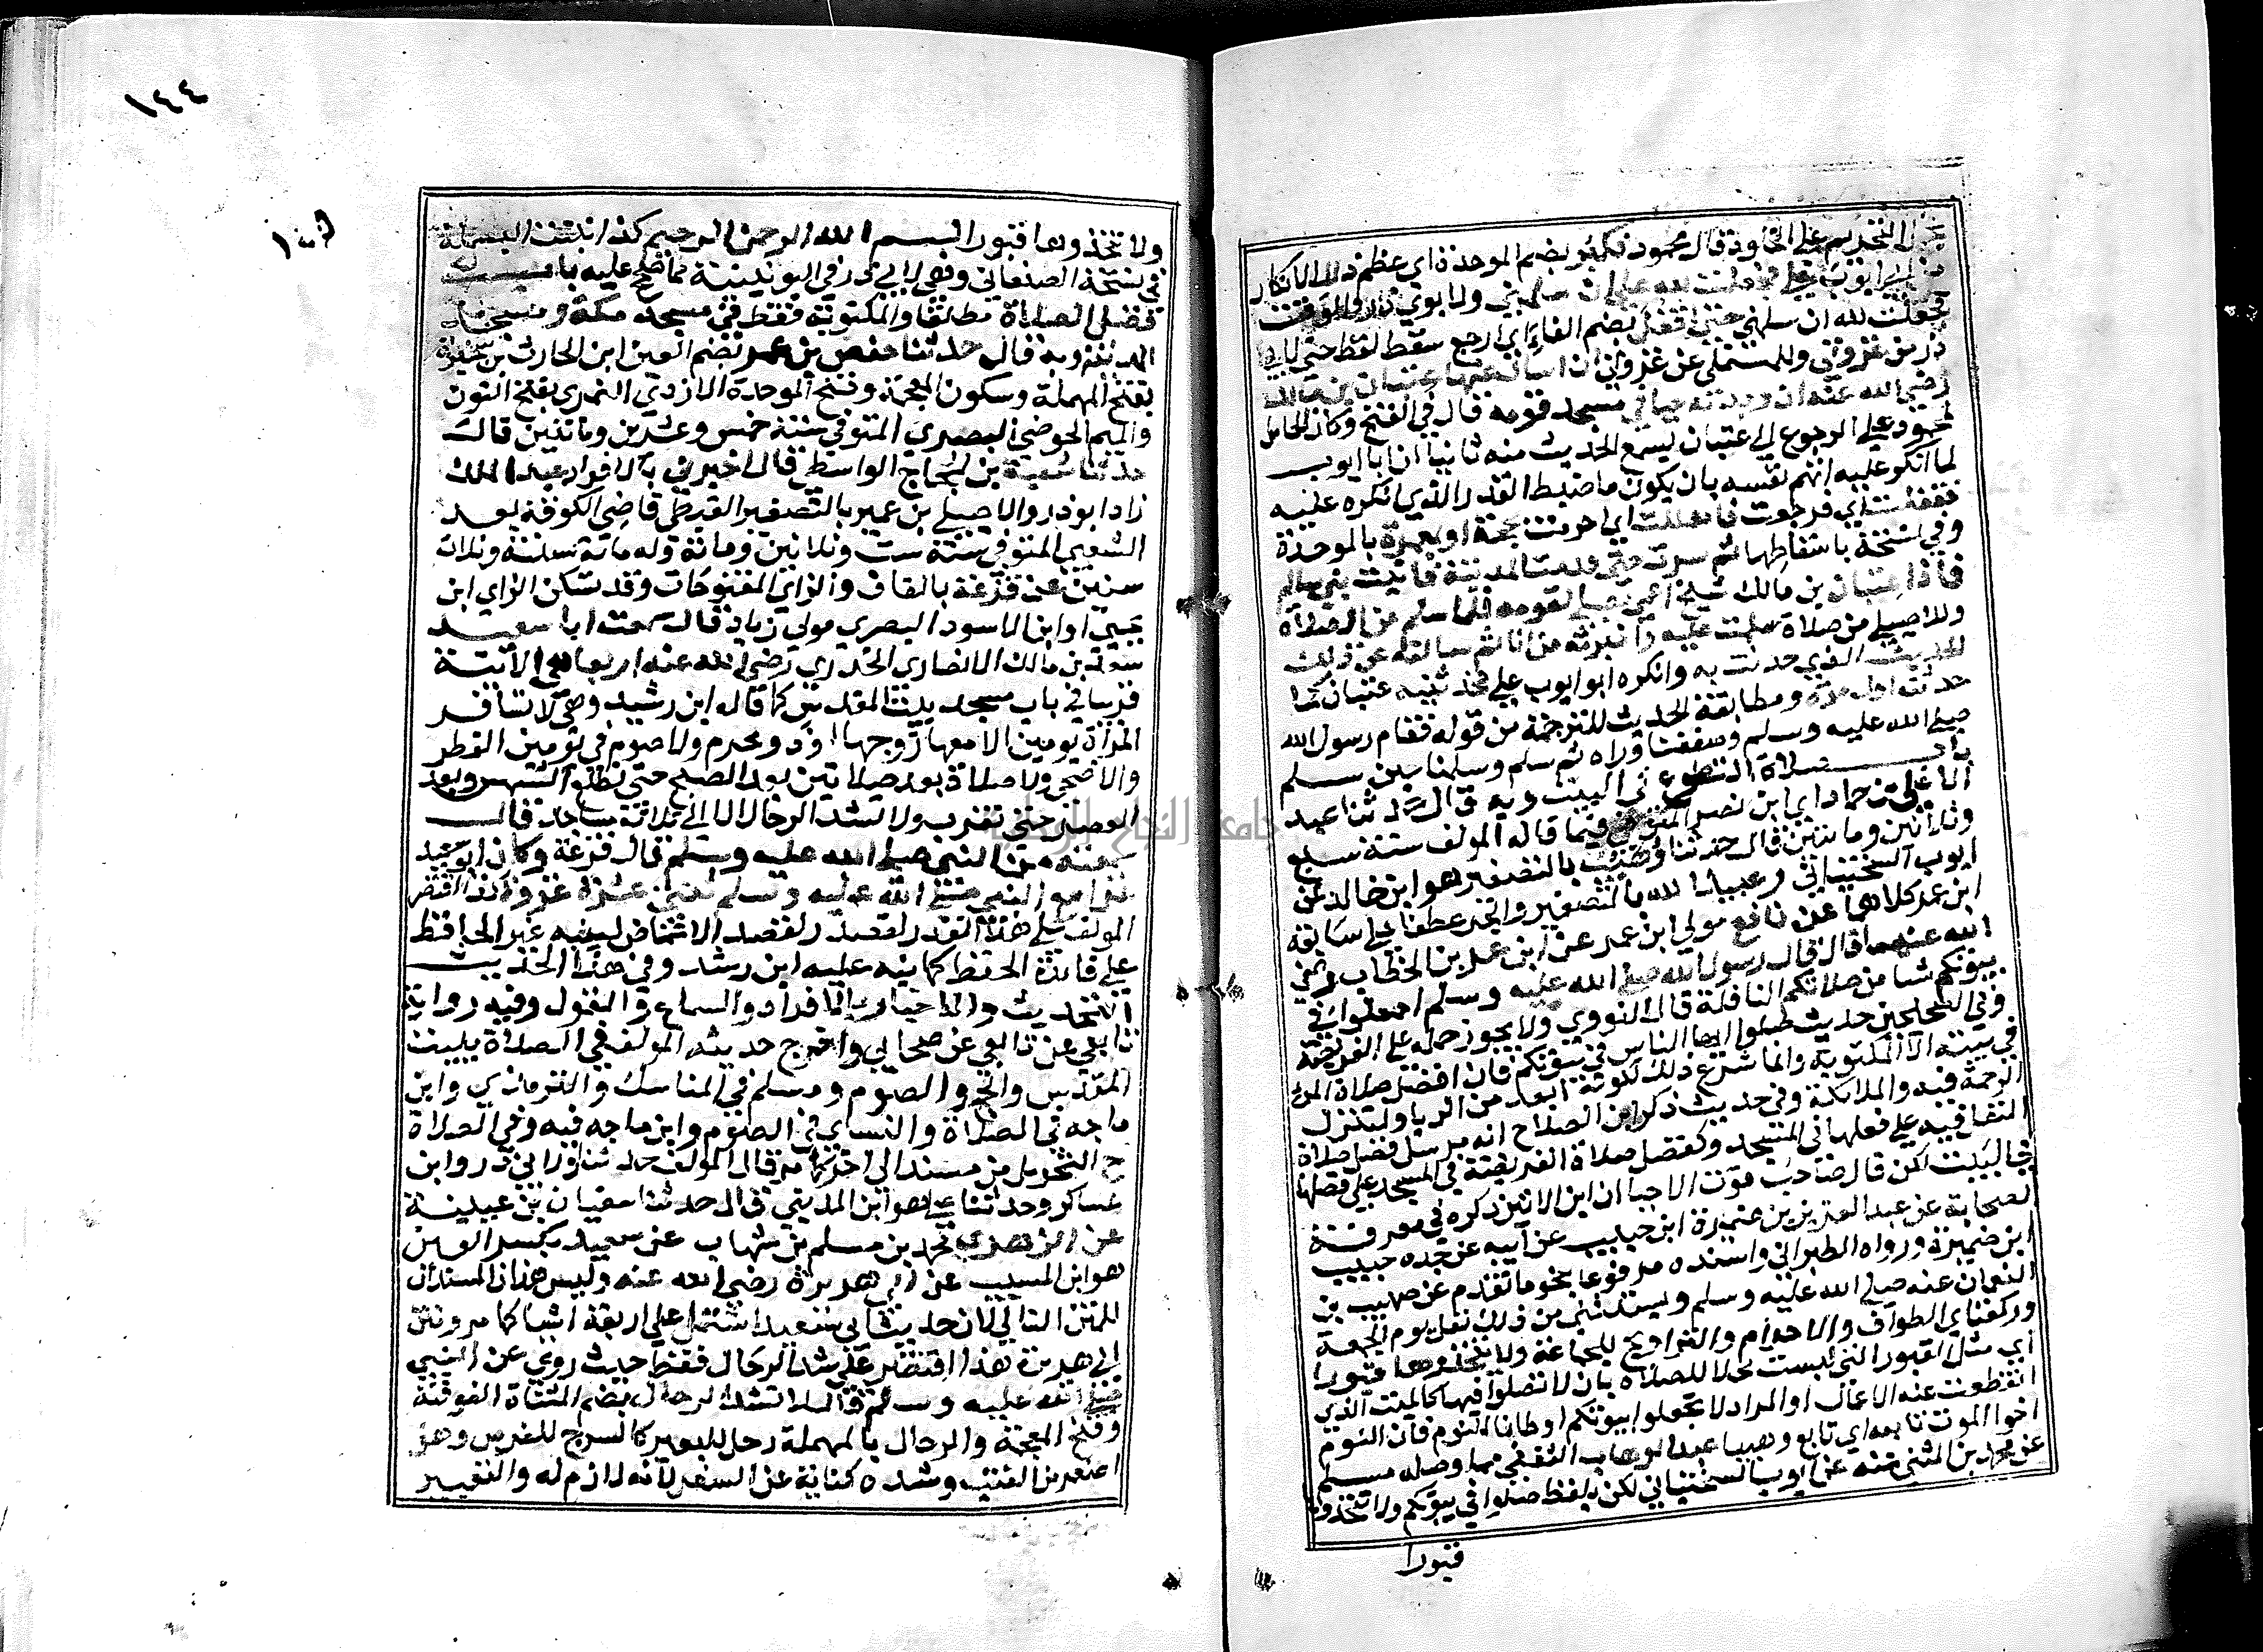 على التحريم على الخاود قال محمود فكبر بضم الموحدة اي عظم ذلك الانكار
من ابي ايوب على فجعلت لله علي ان سلمني ولابوي ذر والوقت
فجعلت لله ان سلمني حتى اقفل بضم الفاء اي ارجع سقط لفظ حتى لابي
ذر من غزوتي وللمستملي عن غزوتي ان اسال عنها عتبان بن مالك
رضي الله عنه ان وجدته حيا في مسجد قومه قال في الفتح وكان الحامل
لمحمود على الرجوع الى عتبان ليسمع الحديث منه ثانيا ان ابا ايوب
لما انكر عليه اتهم نفسه بان يكون ما ضبط القدر الذي انكره عليه
فقفلت اي فرجعت فاهللت اي احرمت بحجة او بعمرة بالموحدة
وفي نسخة باسقاطها ثم سرت حتى قدمت المدينة فاتيت بني سالم
فاذا عتبان بن مالك شيخ اعمى يصلي لقومه فلما سلم من الصلاة
وللاصيلي من صلاته سلمت عليه واخبرته من انا ثم سالته عن ذلك
الحديث الذي حدثت به وانكره ابو ايوب علي فحدثنيه عتبان كما
حدثنيه اول مرة ومطابقة الحديث للترجمة من قوله فقام رسول الله
صلى الله عليه وسلم وصففنا وراه ثم سلم وسلمنا حين سلم
باب صلاة التطوع في البيت وبه قال حدثنا عبد
الاعلى بن حماد اي ابن نصر المتوفى فيما قاله المولف سنة سبع
وثلاثين وماتين قال حدثنا وهيب بالتصغير هو ابن خالد عن
ايوب السختياني وعبيد الله بالتصغير والجر عطفا على سابقه
ابن عمر كلاهما عن نافع مولى ابن عمر عن ابن عمر بن الخطاب رضي
الله عنهما قال قال رسول الله صلى الله عليه وسلم اجعلوا في
بيوتكم شيا من صلاتكم النافلة قال النووي ولا يجوز حمله على الفريضة
وفي الصحيحين حديث صلوا ايها الناس في بيوتكم فان افضل صلاة المرء
في بيته الا المكتوبة وانما شرع ذلك لكونه ابعد من الريا ولتنزل
الرحمة فيه والملائكة وفي حديث ذكره ابن الصلاح انه مرسل فضل صلاة
النفل فيه على فعلها في المسجد كفضل صلاة الفريضة في المسجد على فضلها
في البيت لكن قال صاحب قوت الاحيا ان ابن الاثير ذكره في معرفة
الصحابة عن عبد العزيز بن ضميرة ابن حبيب عن ابيه عن جده حبيب
ابن ضميرة ورواه الطبراني واسنده مرفوعا بنحو ما تقدم عن صهيب بن
النعمان عنه صلى الله عليه وسلم ويستثنى من ذلك نفل يوم الجمعة
وركعتا الطواف والاحرام والتراويح للجماعة ولا تتخذوها قبورا
اي مثل القبور التي ليست محلا للصلاة بان لا تصلوا فيها كالميت الذي
انقطعت عنه الاعمال او المراد لا تجعلوا بيوتكم اوطانا للنوم فان النوم
اخو الموت تابعه اي تابع وهيبا عبد الوهاب الثقفي مما وصله مسلم
عن محمد بن المثنى عنه عن ايوب السختياني لكن بلفظ صلوا في بيوتكم ولا تتخذوها
قبورا
١٤٤
ولا تتخذوها قبورا بسم الله الرحمن الرحيم كذا ثبتت البسملة
في نسخة الصنعاني وهي لابي ذر في اليونينية مما صح عليه باب
فضل الصلاة مطلقا والمكتوبة فقط في مسجد مكة ومسجد
المدينة وبه قال حدثنا حفص بن عمر بضم العين ابن الحارث بن سخبرة
بفتح المهملة وسكون المعجمة وفتح الموحدة الازدي النمري بفتح النون
والميم الحوضي البصري المتوفى سنة خمس وعشرين وماتين قال
حدثنا شعبة بن الحجاج الواسطي قال اخبرني بالافراد عبد الملك
زاد ابو ذر والاصيلي بن عمير بالتصغير القرطي قاضي الكوفة بعد
الشعبي المتوفى سنة ست وثلاثين ومائة وله مائة سنة وثلاث
سنين عن قزعة بالقاف والزاي المفتوحات وقد تسكن الزاي ابن
يحيى او ابن الاسود البصري مولى زياد قال سمعت ابا سعيد
سعد بن مالك الانصاري الخدري رضي الله عنه اربعا هي الاتية
قريبا في باب مسجد بيت المقدس كما قاله ابن رشيد وهي لا تسافر
المراة يومين الا معها زوجها او ذو محرم ولا صوم في يومين الفطر
والاضحى ولا صلاة بعد صلاتين بعد الصبح حتى تطلع الشمس وبعد
العصر حتى تغرب ولا تشد الرحال الا الى ثلاثة مساجد قال
سمعته من النبي صلى الله عليه وسلم قال قزعة وكان ابو سعيد
غزا مع النبي صلى الله عليه وسلم ثنتي عشرة غزوة كذا اقتصر
المولف على هذا القدر لقصد الاغماض لينبه غير الحافظ
على فائدة الحفظ كما نبه عليه ابن رشيد وفي هذا الحديث
التحديث والاخبار بالافراد والسماع والقول وفيه رواية
تابعي عن تابعي عن صحابي واخرج حديثه المولف في الصلاة ببيت
المقدس والحج والصوم ومسلم في المناسك والترمذي وابن
ماجه في الصلاة والنساي في الصوم وابن ماجه فيه وفي الصلاة
ح التحويل من مسند الى اخر كما مر قال المولف حدثنا ولابي ذر وابن
عساكر وحدثنا علي هو ابن المديني قال حدثنا سفيان بن عيينة
عن الزهري محمد بن مسلم بن شهاب عن سعيد بكسر العين
هو ابن المسيب عن ابي هريرة رضي الله عنه وليس هذان المسندان
للمتن التالي لان حديث ابي سعيد اشتمل على اربعة اشيا كما مر ومتن
ابي هريرة هذا اقتصر على شد الرحال فقط حيث روي عن النبي
صلى الله عليه وسلم قال لا تشد الرحال بضم المثناة الفوقية
وفتح المعجمة والرحال بالمهملة رحل للبعير كالسرج للفرس وهو
اصغر من القتب وشده كناية عن السفر لانه لازم له والتعبير